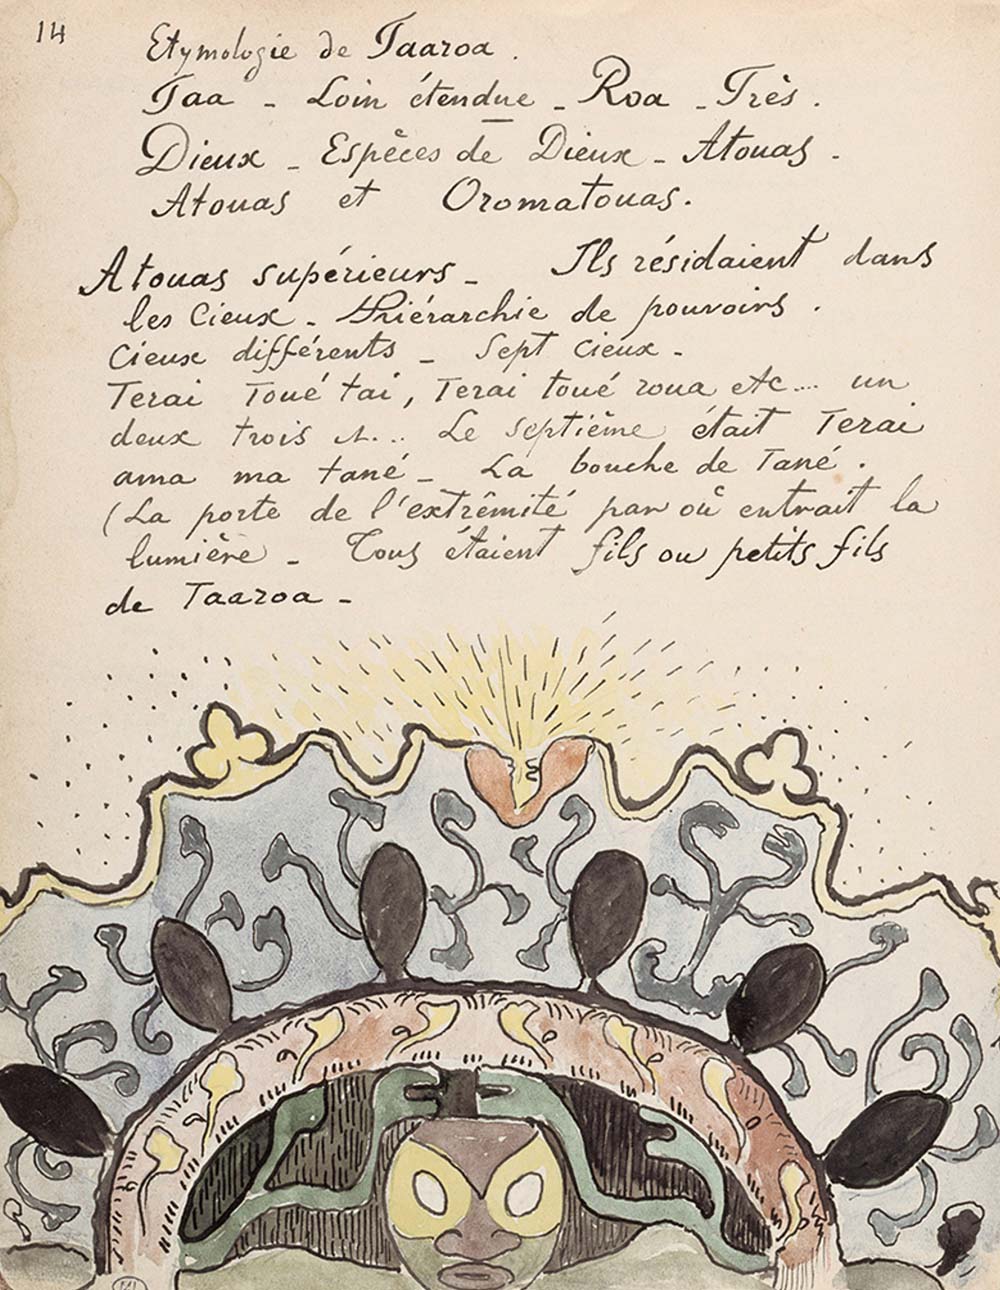 14
Etymologie de Taaroa.
Taa - Loin étendue - Roa - Très.
Dieux - Espèces de Dieux - Atouas -
Atouas et Oromatouas.
Atouas supérieurs - Ils résidaient dans
les Cieux - Hiérarchie de pouvoirs.
Cieux différents - Sept cieux -
Terai Toué tai, Terai toué roua etc.... un
deux trois .. Le septième était Terai
ama ma tané - La bouche de Tané.
(La porte de l'extrêmité par où entrait la
lumière - Tous étaient fils ou petits fils
de Taaroa -